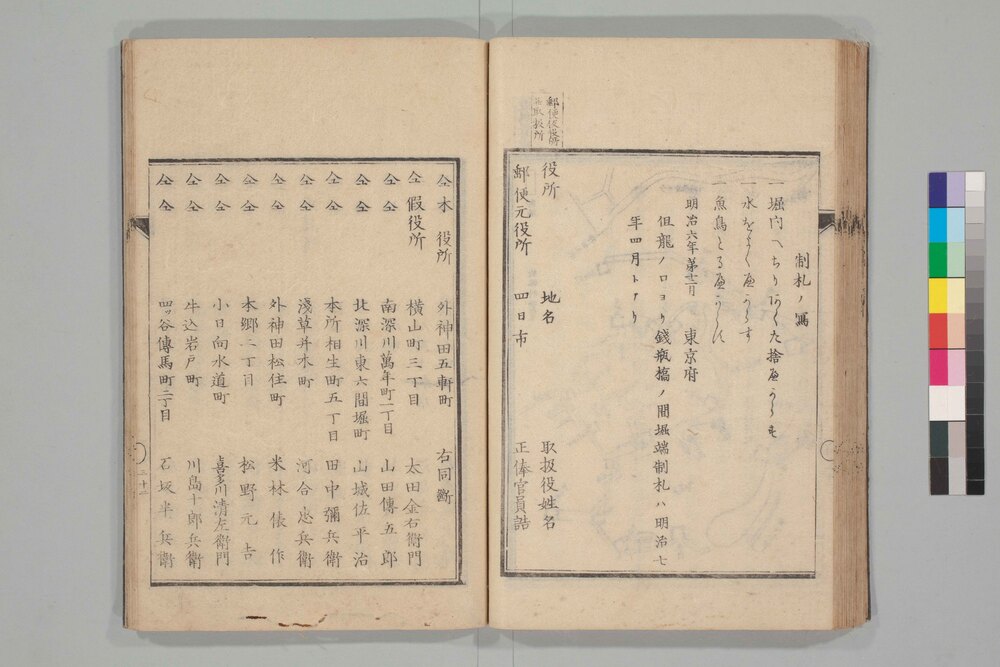 制札ノ寫
一堀内へちりあくた捨へからす
一水をよくへからす
一魚鳥とるへからす
明治六年第十二月 東京府
但龍ノ口ヨリ錢瓶橋ノ間堀端制札ハ明治七
年四月トアリ
郵便役所
取扱所
役所 地名 取扱役姓名
郵便元役所 四日市 正俸官員詰
仝本役所 外神田五軒町 右同斷
仝假役所 横山町三丁目 太田金右衛門
仝仝 南深川萬年町一丁目 山田傳五郎
仝仝 北深川東六間堀町 山城佐平治
仝仝 本所相生町五丁目 田中彌兵衛
仝仝 淺草并木町 河合忠兵衛
仝仝 外神田松住町 米林俵作
仝仝 本郷二丁目 松野元吉
仝仝 小日向水道町 喜多川清左衛門
仝仝 牛込岩戸町 川島十郎兵衛
仝仝 四ッ谷傳馬町三丁目 石坂半兵衛
二十二